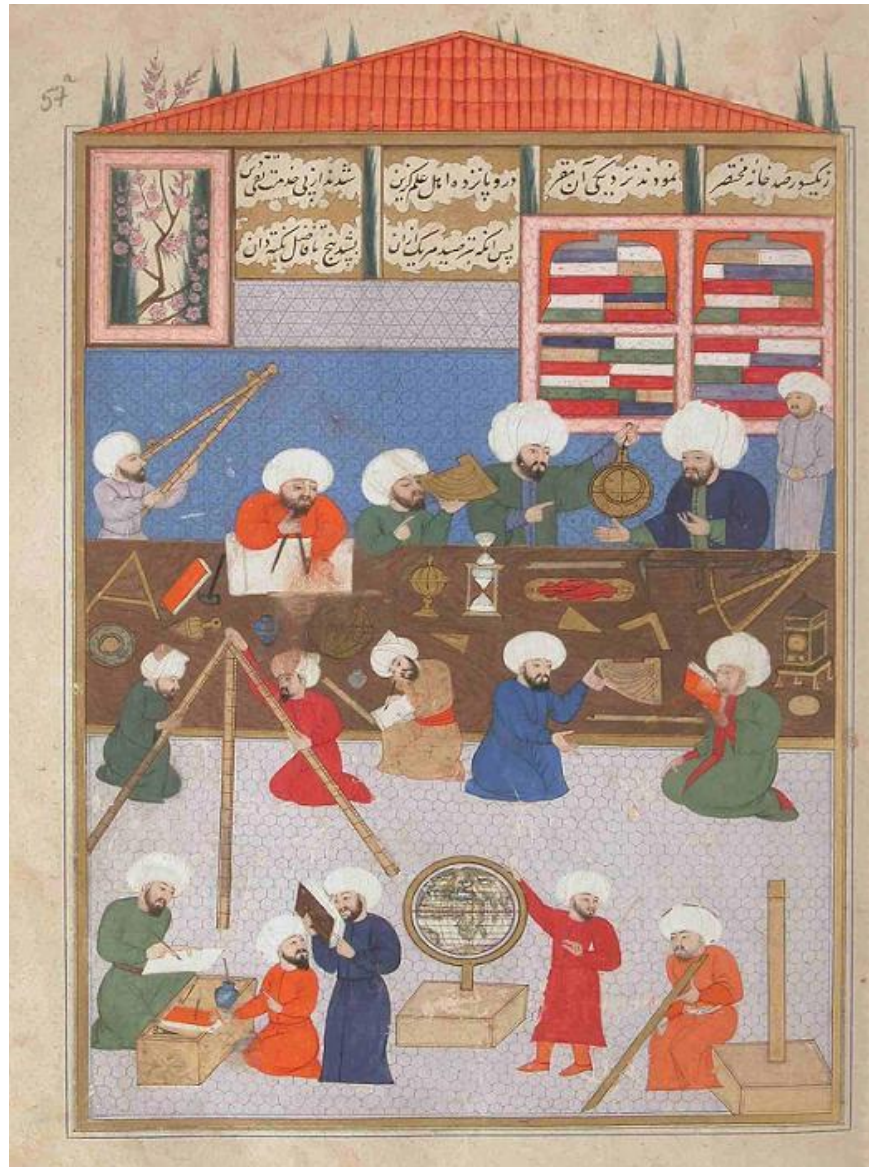 57a
زیکسو رصد خانۀ مختصر نمودند نزدیکی آن مقر درو پانزده اهل علم گزین شدند از پی خدمت تقی دین
پس انکه بترصید هر یک ازان بشد پنج تا فاضل نکته دان